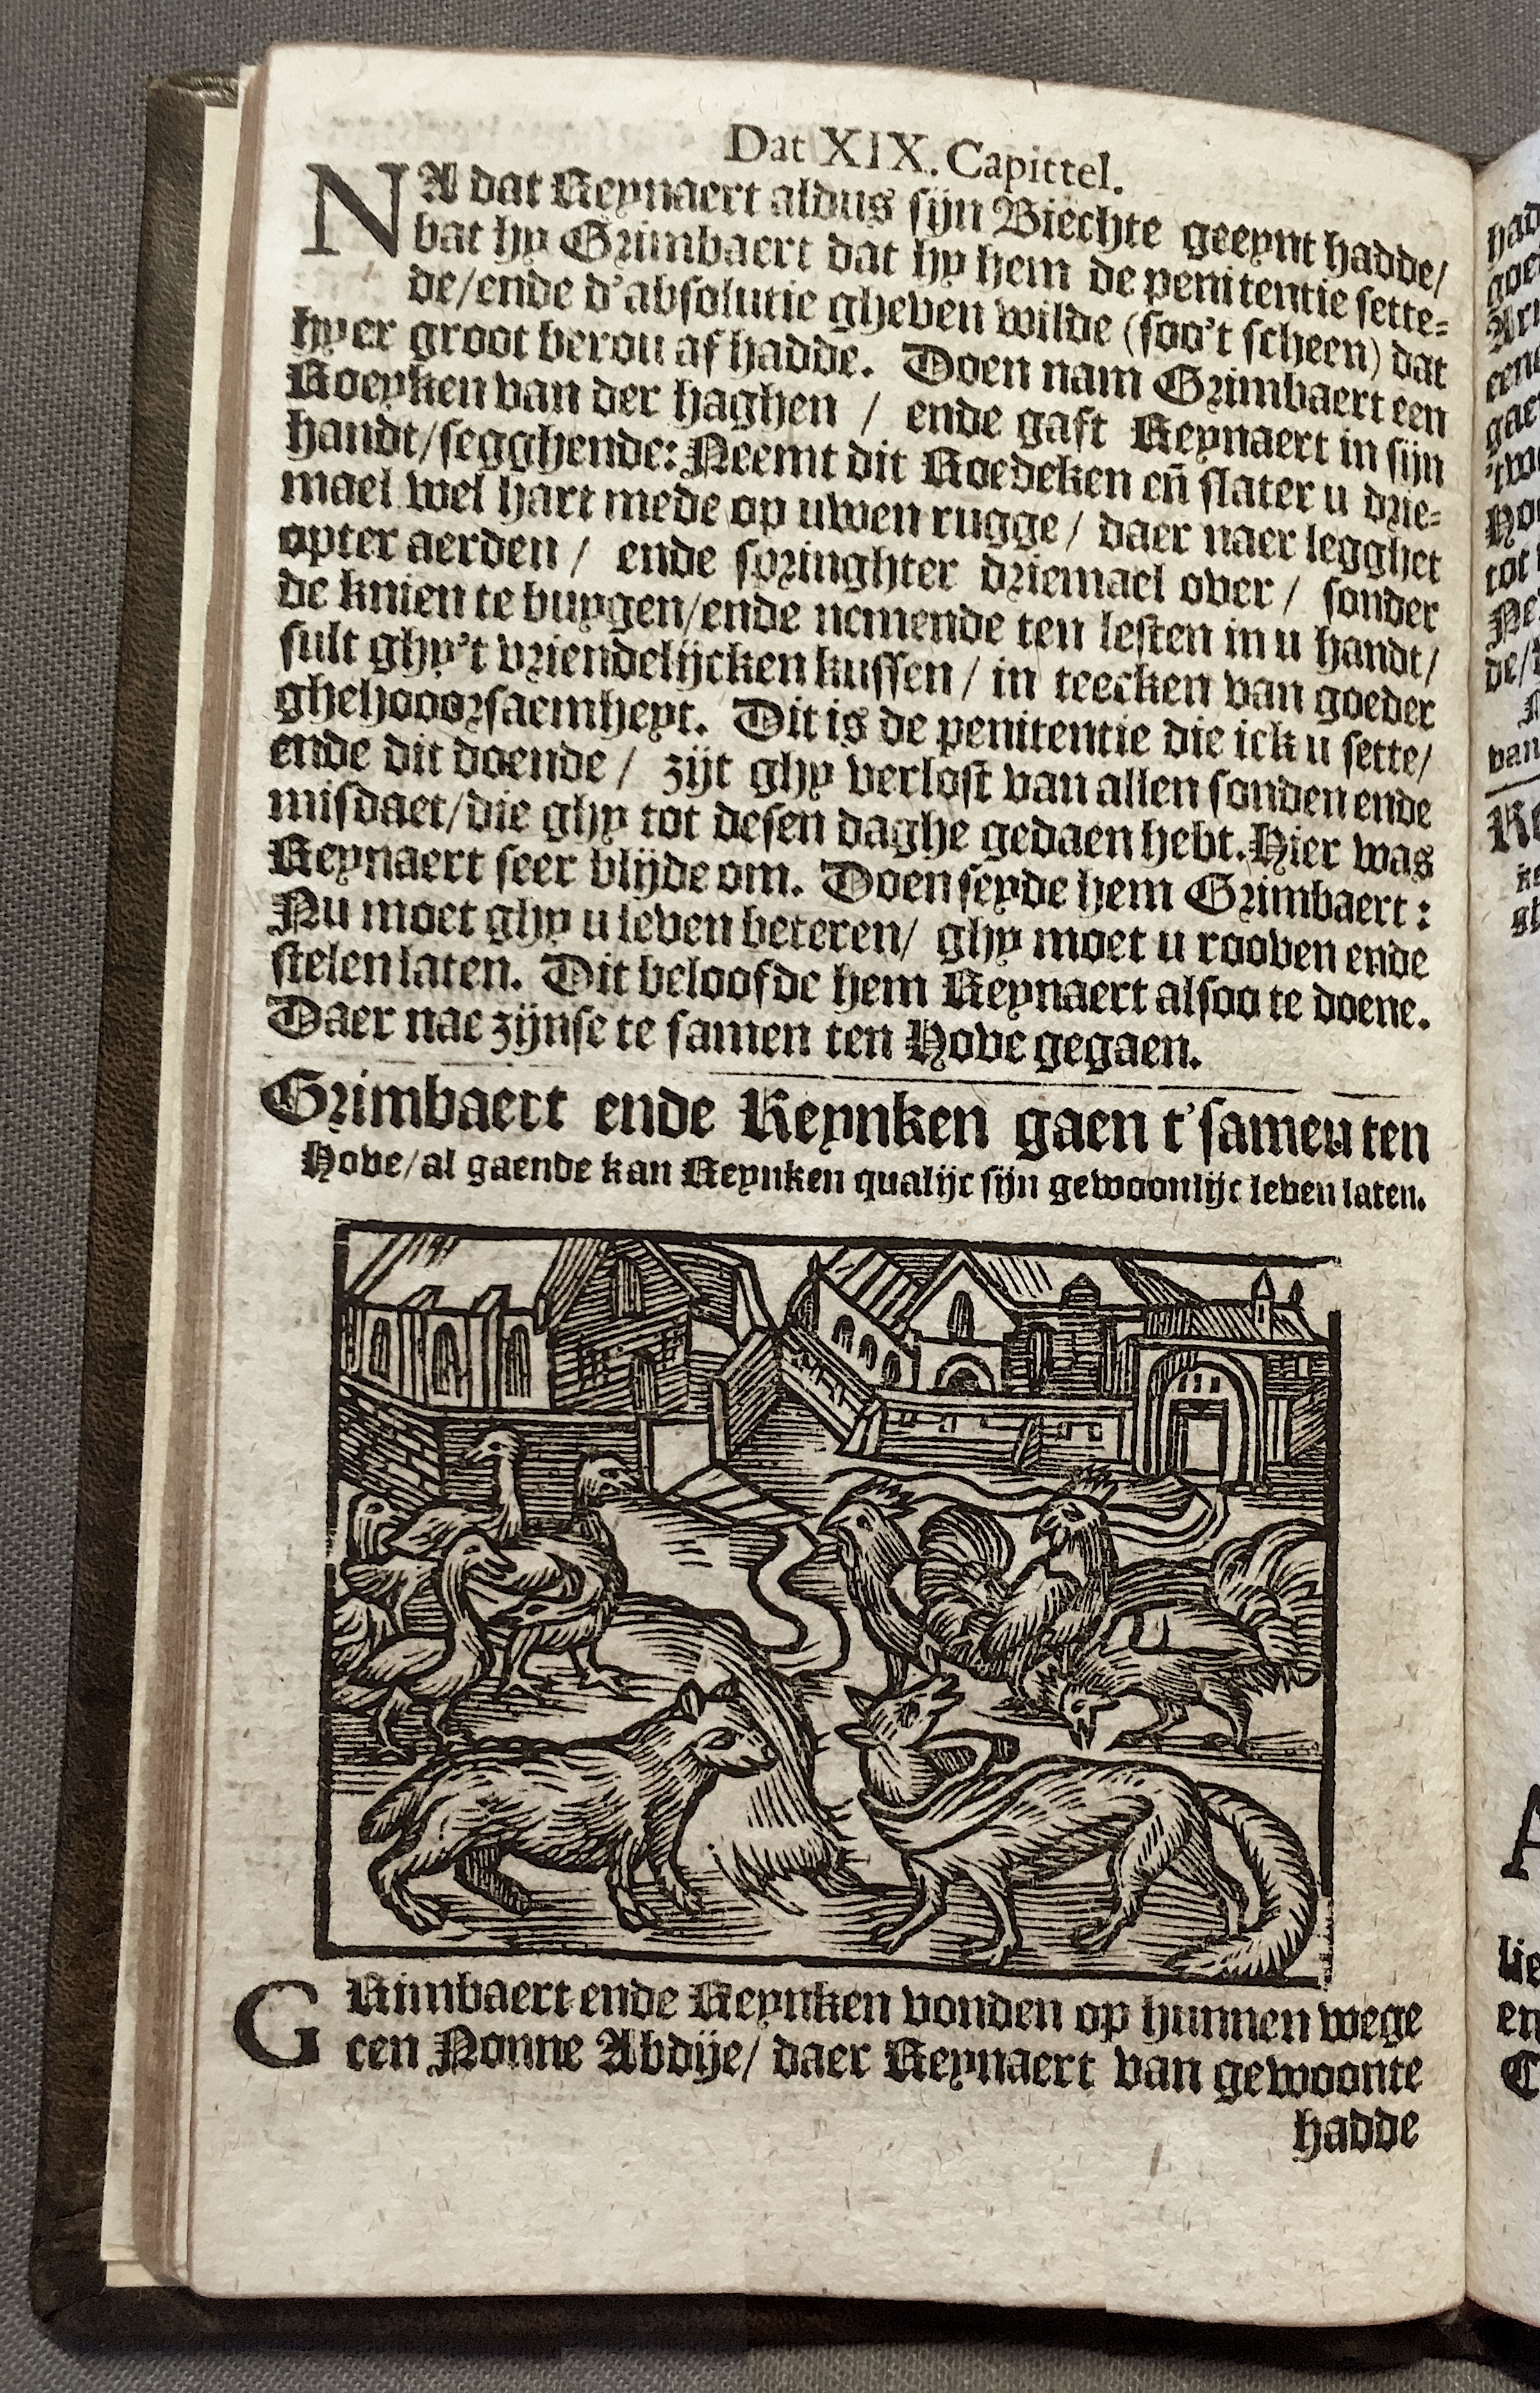 Dat XIX. Capittel.
NA dat Reynaert aldus sijn Biechte geeynt hadde/
bat hy Grimbaert dat hy hem de penitentie sette-
de/ende d'absolutie gheven wilde (soo't scheen) dat
hy er groot berou af hadde. Doen nam Grimbaert een
Roeyken van der haghen / ende gaft Reynaert in sijn
handt/segghende: Neemt dit Roedeken eñ slater u drie-
mael wel hart mede op uwen rugge/ daer naer legghet
opter aerden / ende springhter driemael over / sonder
de knien te buygen/ende nemende ten lesten in u handt/
sult ghy't vriendelijcken kussen / in teecken van goeder
ghehooorsaemheyt. Dit is de penitentie die ick u sette/
ende dit doende / zijt ghy verlost van allen sonden ende
misdaet/die ghy tot desen daghe gedaen hebt. Hier was
Reynaert seer blijde om. Doen seyde hem Grimbaert :
Nu moet ghy u leven beteren/ ghy moet u rooven ende
stelen laten. Dit beloofde hem Reynaert alsoo te doene.
Daer nae zijnse te samen ten Hove gegaen.
Grimbaert ende Reynken gaen t'sameu ten
Hove/al gaende kan Reynken qualijc sijn gewoonlijc leven laten.
GRimbaert ende Reynken vonden op hunnen wege
een Nonne Abdije/ daer Reynaert van gewoonte
hadde